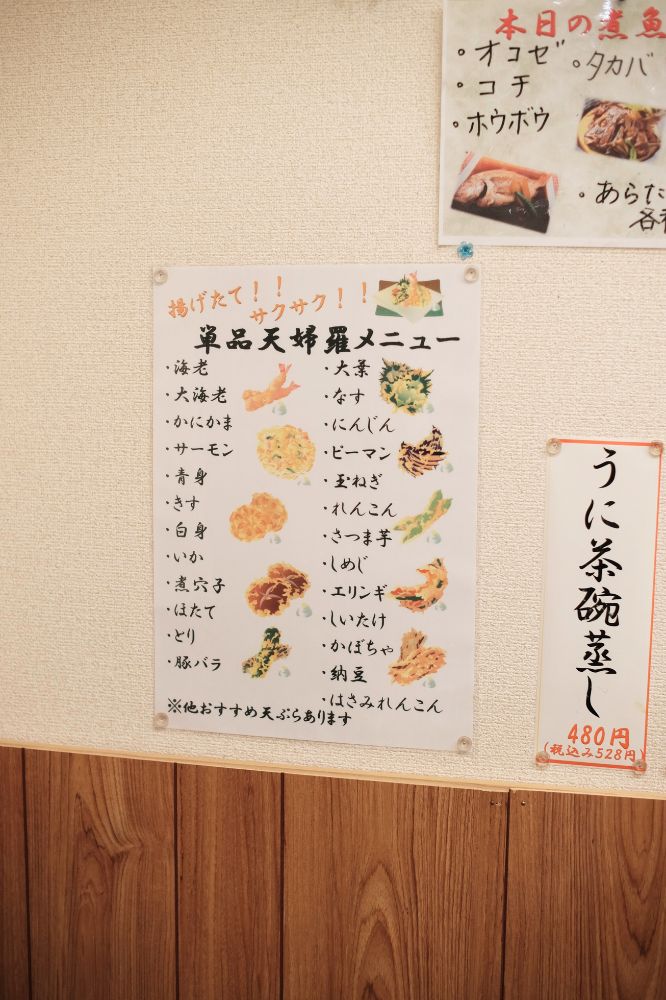 本日の煮魚
・オコゼ
・タカバ
・コチ
・ホウボウ
・あらた
各種
揚げたて！！
サクサク！！
単品天婦羅メニュー
・海老
・大海老
・かにかま
・サーモン
・青身
・きす
・白身
・いか
・煮穴子
・ほたて
・とり
・豚バラ
・大葉
・なす
・にんじん
・ピーマン
・玉ねぎ
・れんこん
・さつま芋
・しめじ
・エリンギ
・しいたけ
・かぼちゃ
・納豆
・はさみれんこん
※他おすすめ天ぷらあります
うに茶碗蒸し
480円
(税込み528円)